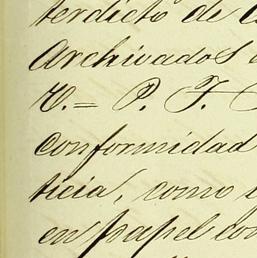 terdicto de
Archivados
V.= P. F.
conformidad
ticia, como
en papel con